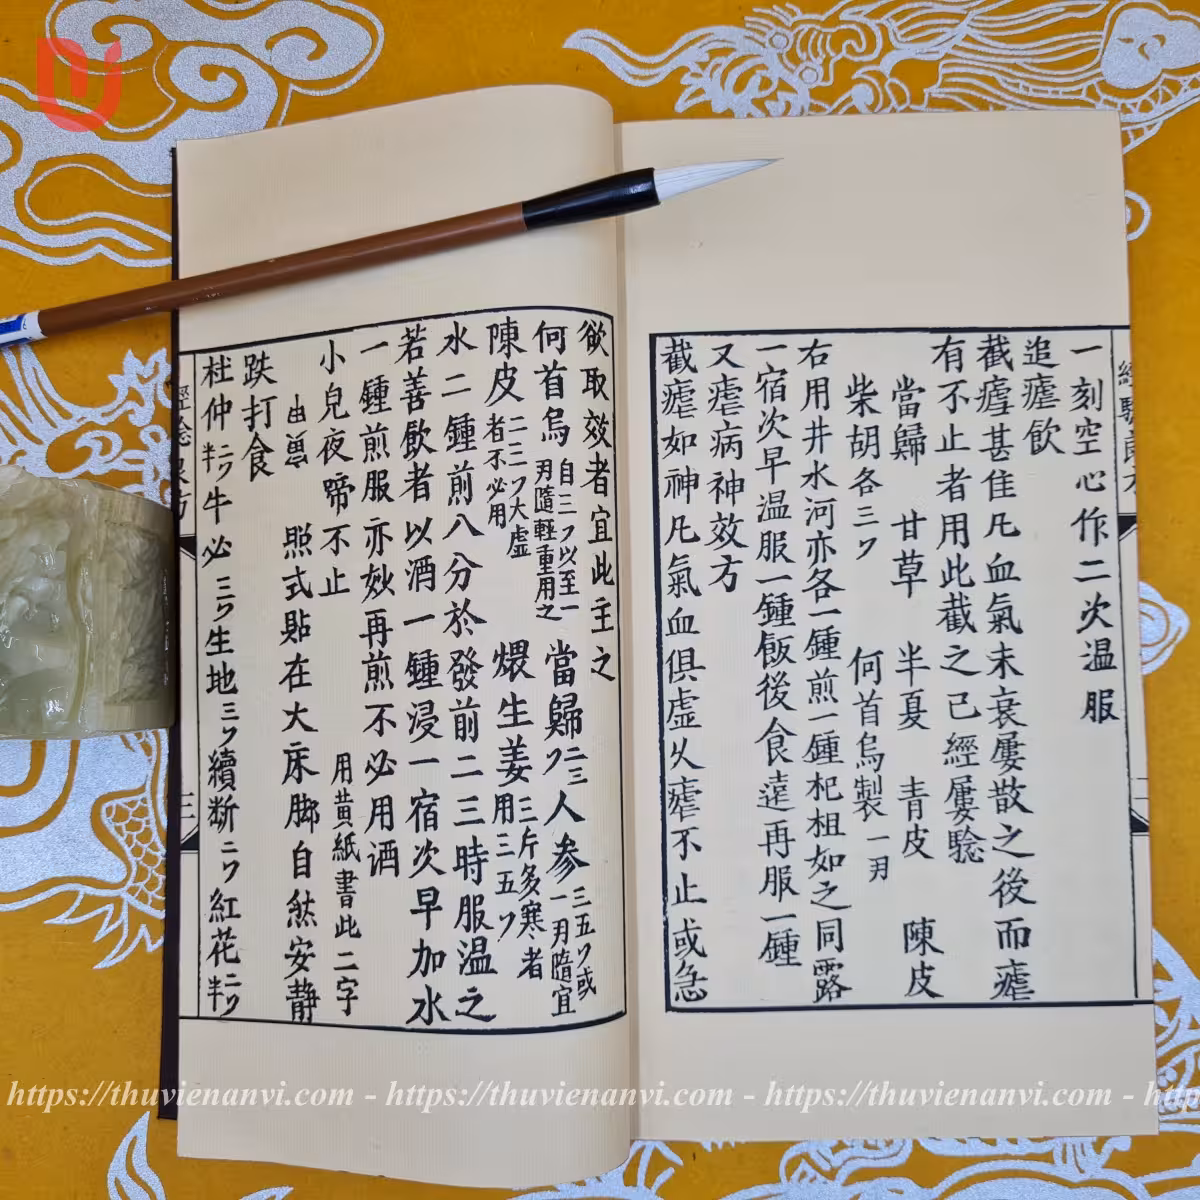 一刻空心作二次温服
追瘧飲
截瘧甚佳凡血氣未衰屢散之後而瘧
有不止者用此截之已經屢驗
當歸 甘草 半夏 青皮 陳皮
柴胡各三 何首烏製一
右用井水河亦各一鍾煎一鍾杷柤如之同露
一宿次早温服一鍾飯後食遠再服一鍾
又瘧病神效方
截瘧如神凡氣血俱虛久瘧不止或急
欲取效者宜此主之
何首烏 自三以至一隨輕重用之 當歸 二三 人参 三五或一隨宜
陳皮 二三大虛者不必用 煨生姜 三斤多寒者用三五
水二鍾煎八分於發前二三時服温之
若善飲者以酒一鍾浸一宿次早加水
一鍾煎服亦妙再煎不必用酒
小兒夜啼不止 用黄紙書此二字
照式貼在大床脚自然安静
跌打食
杜仲 牛必 三 生地 三 續断 二 紅花
https://thuvienanvi.com - https://thuvienanvi.com - https://thuvienanvi.com - http